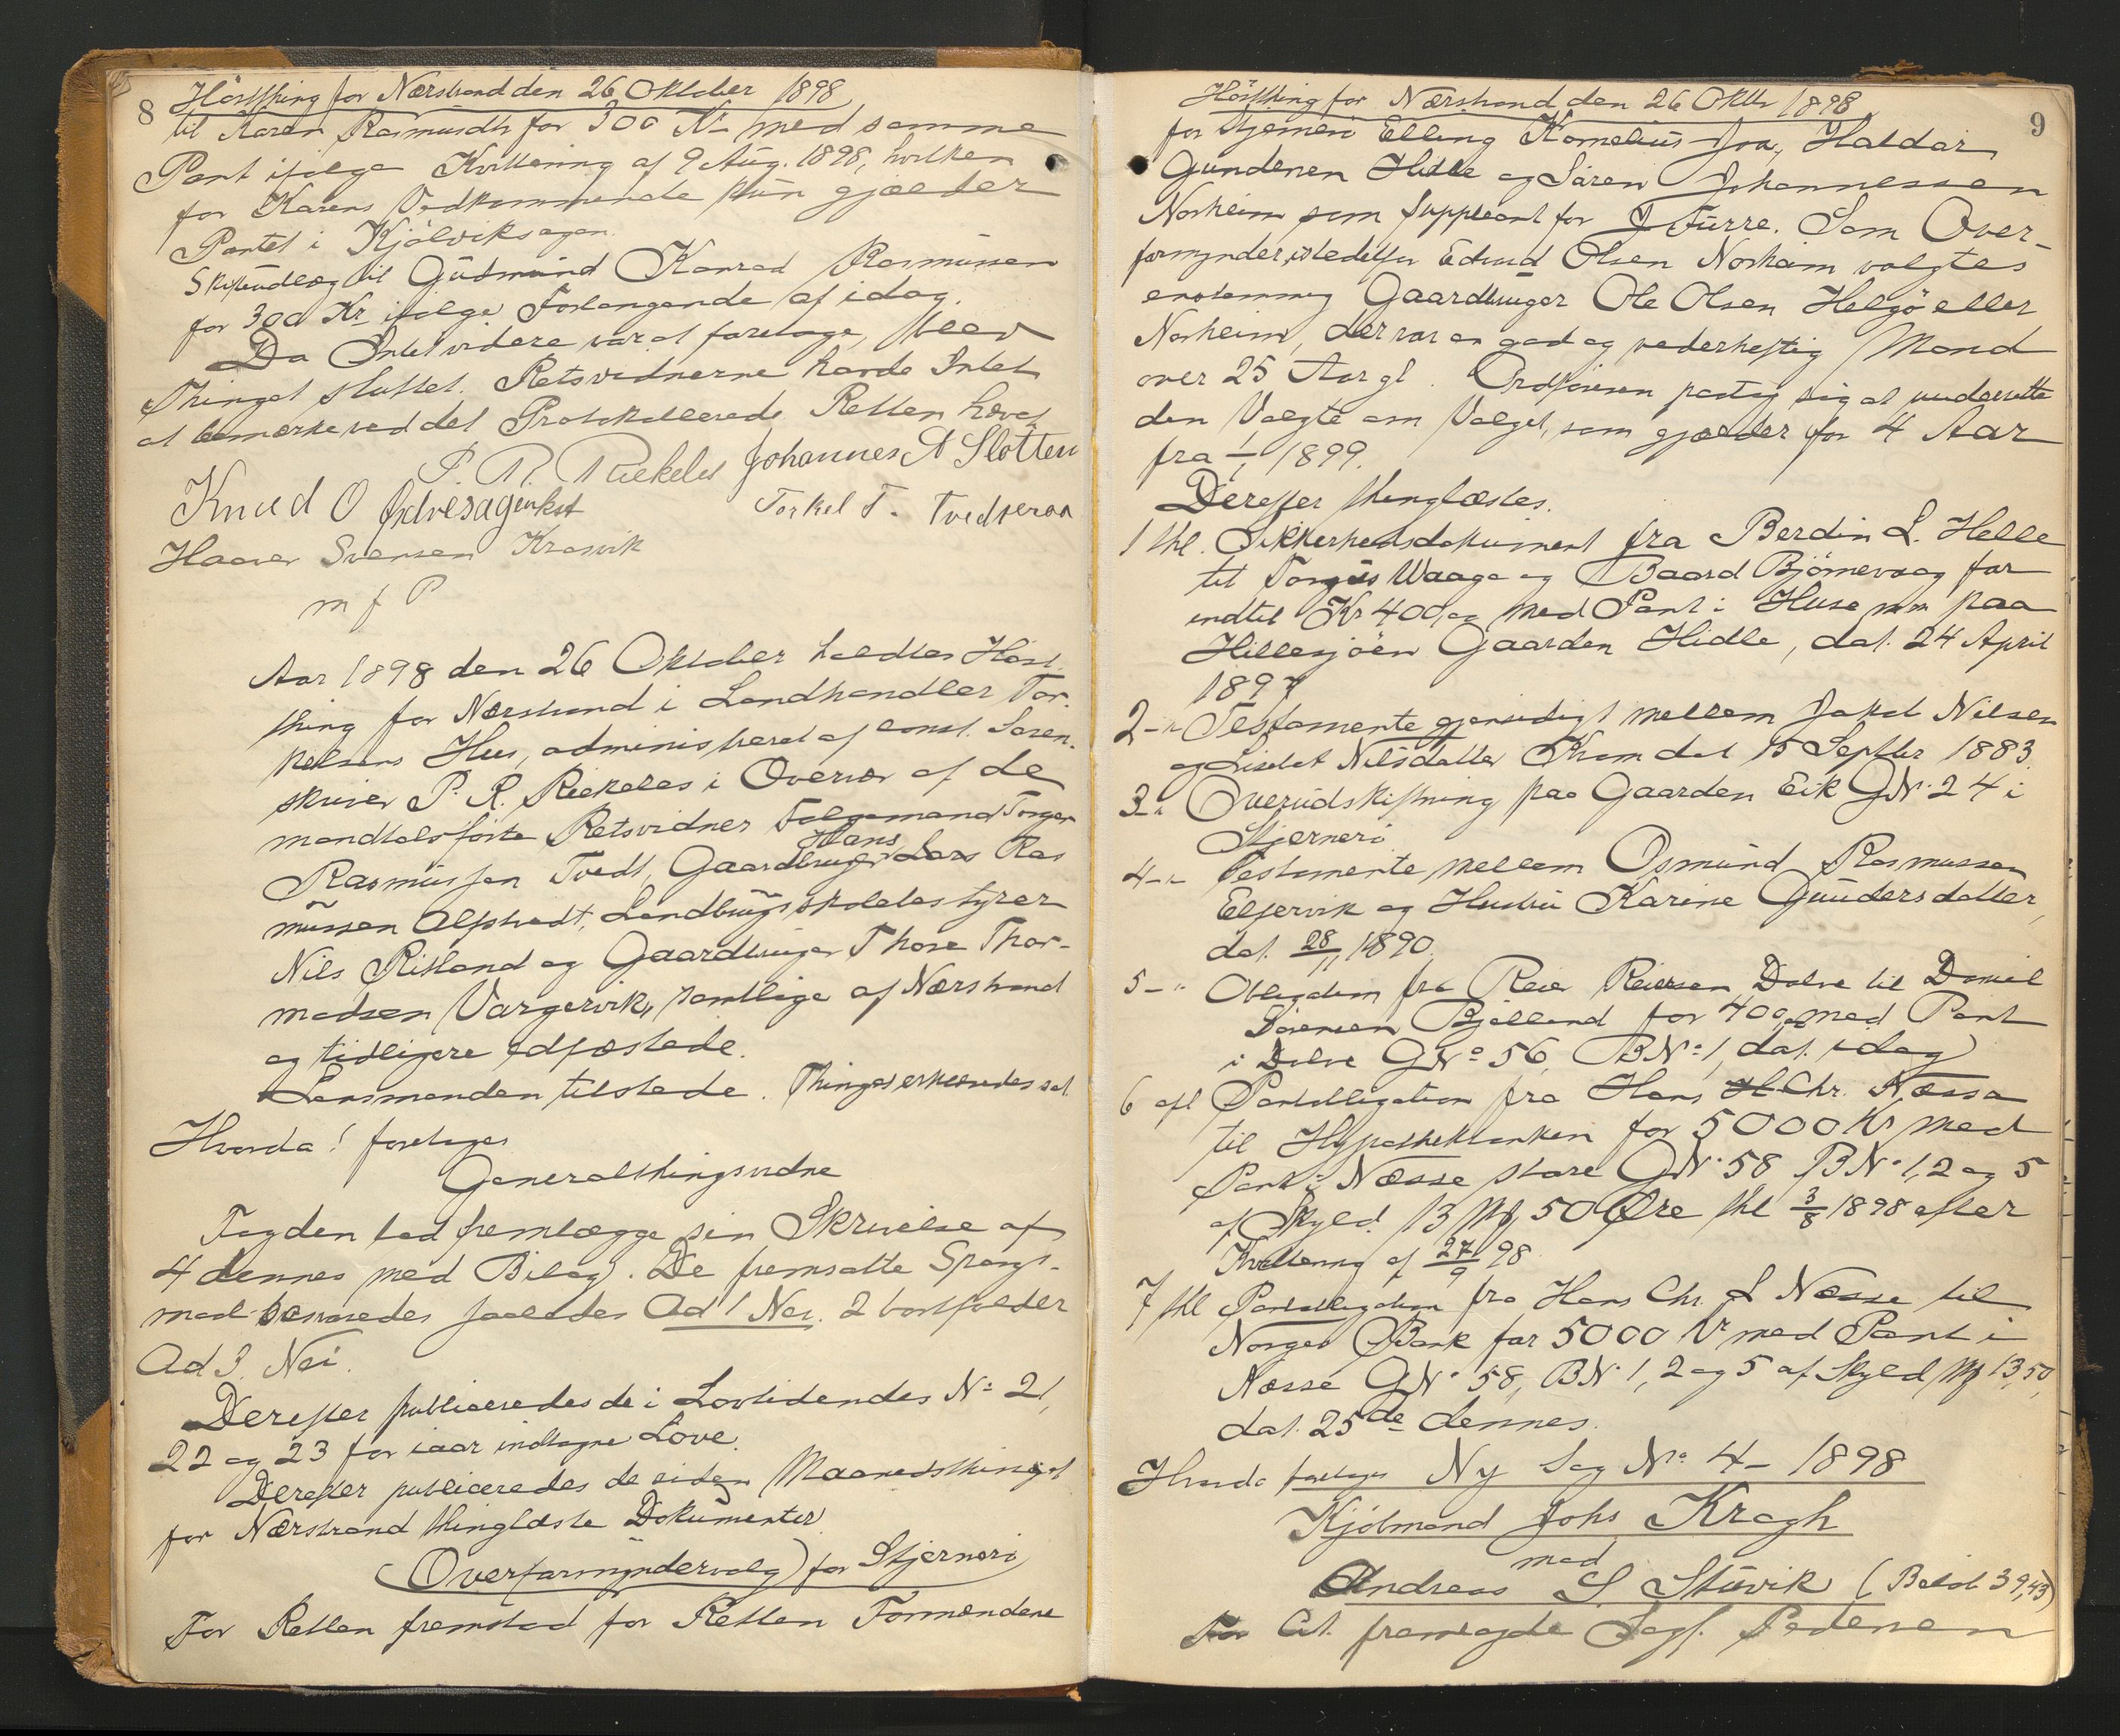 8 Høstthing for Nærstrand den 26 Oktober 1898
til Karen Rasmusdtr for 300 Kr med samme
Pant ifølge Kvittering af 9 Aug. 1898, hvilken
for Karens Vedkommende kun gjælder
Pantet i Kjölviksagen
Skifteudlæg til Gudmund Konrad Rasmussen
for 300 Kr ifølge Forlangende af idag.
Da Intet videre var at foretage, blev
Thinget sluttet. Retsvidnerne havde Intet
at bemærke ved det Protokollerede. Retten hævet
P. R. Riekeles Johannes A Slotten
Knud O
Torkel T. Tvedteraa
Haaver Svensen Krosvik
m f P
Aar 1898 den 26 Oktober holdtes Høst-
thing for Nærstrand i Landhandler Tor-
kelsens Hus, administreret af const. Soren-
skriver P. R. Riekeles i Overvær af de
mandtalsførte Retsvidner Følgemand Torger
Rasmussen Tvedt, Gaardbruger Lars Hans Ras
mussen Alfstvedt, Landbrugsskolebestyrer
Nils Risland og Gaardbruger Thore Thor-
madsen Vargervik, samtlige af Nærstrand
og tidligere edfæstede.
Lensmanden tilstede. Thinget erklæredes sat
Hvorda! foretages
Generalthingsvidne
Fogden lod fremlægge sin Skrivelse af
4 dennes med Bilag. De fremsatte Spørgs-
maal besvaredes saaledes Ad 1 Nei. 2 bortfalder
Ad 3. Nei.
Derefter publiceredes de i Lovtidendes No 21,
22 og 23 for iaar indtagne Love.
Derefter publiceredes de siden Maanedsthinget
for Nærstrand thinglæste Dokumenter
(Overformyndervalg) for Stjernerö
For Retten fremstod for Retten Formændene
Høstthing for Nærstrand den 26 Oktbr 1898 9
for Stjernerö Elling Kornelius Foa, Haldor
Gundersen Hidle og Søren Johannessen
Norheim som Suppleant for J Furre. Som Over-
formynder istedetfor Edvard Olsen Norheim valgtes
enstemmig Gaardbruger Ole Olsen Helgö eller
Norheim, der var en god og vederheftig Mand
over 25 Aar gl. Ordføreren paatog sig at underrette
den Valgte om Valget, som gjælder for 4 Aar
fra 1/1 1899.
Derefter thinglæstes.
1 thl. Sikkerhedsdokument fra Berdin L. Helle
til Torgus Waage og Baard Bjørnevaag for
indtil Kr 400,00 med Pant i Huse m m paa
Hillesjöen Gaarden Hidle, dat. 24 April
1897
2 -"- Testamente gjensidigt mellem Jakob Nilsen
og Lisebet Nilsdatter Kram dat 15 Septbr 1883.
3 -"- Overudskiftning paa Gaarden Eik GN. 24 i
Stjernerö
4 -"- Testamente mellem Osmund Rasmussen
Eltervik og Hustru Karine Gundersdatter,
dat. 28/11 1890.
5 -"- Obligation fra Reier Reiersen Dalve til Daniel
Sörensen Bjelland for 400,00 med Pant
i Dalve GNo 56, BNo 1, dat. idag
6 afl Pantobligation fra Hans H Chr. Næsse
til Hypothekbanken for 5000 Kr med
Pant i Næsse store GN. 58 BN. 1, 2 og 5
af Skyld 13 Mk 50 Øre thl 3/8 1898 efter
Kvittering af 27/9 98
7 thl Pantobligation fra Hans Chr. L Næsse til
Norges Bank for 5000 Kr med Pant i
Næsse GN. 58, BN. 1, 2 og 5 af Skyld Mk 13,50,
dat. 25de dennes.
Hvorda foretages Ny Sag No 4 – 1898
Kjøbmand Johs Kragh
mod
Andreas S. Stuvik (Beløb 39,43)
For Cit. fremlagde Sagf. Pedersen